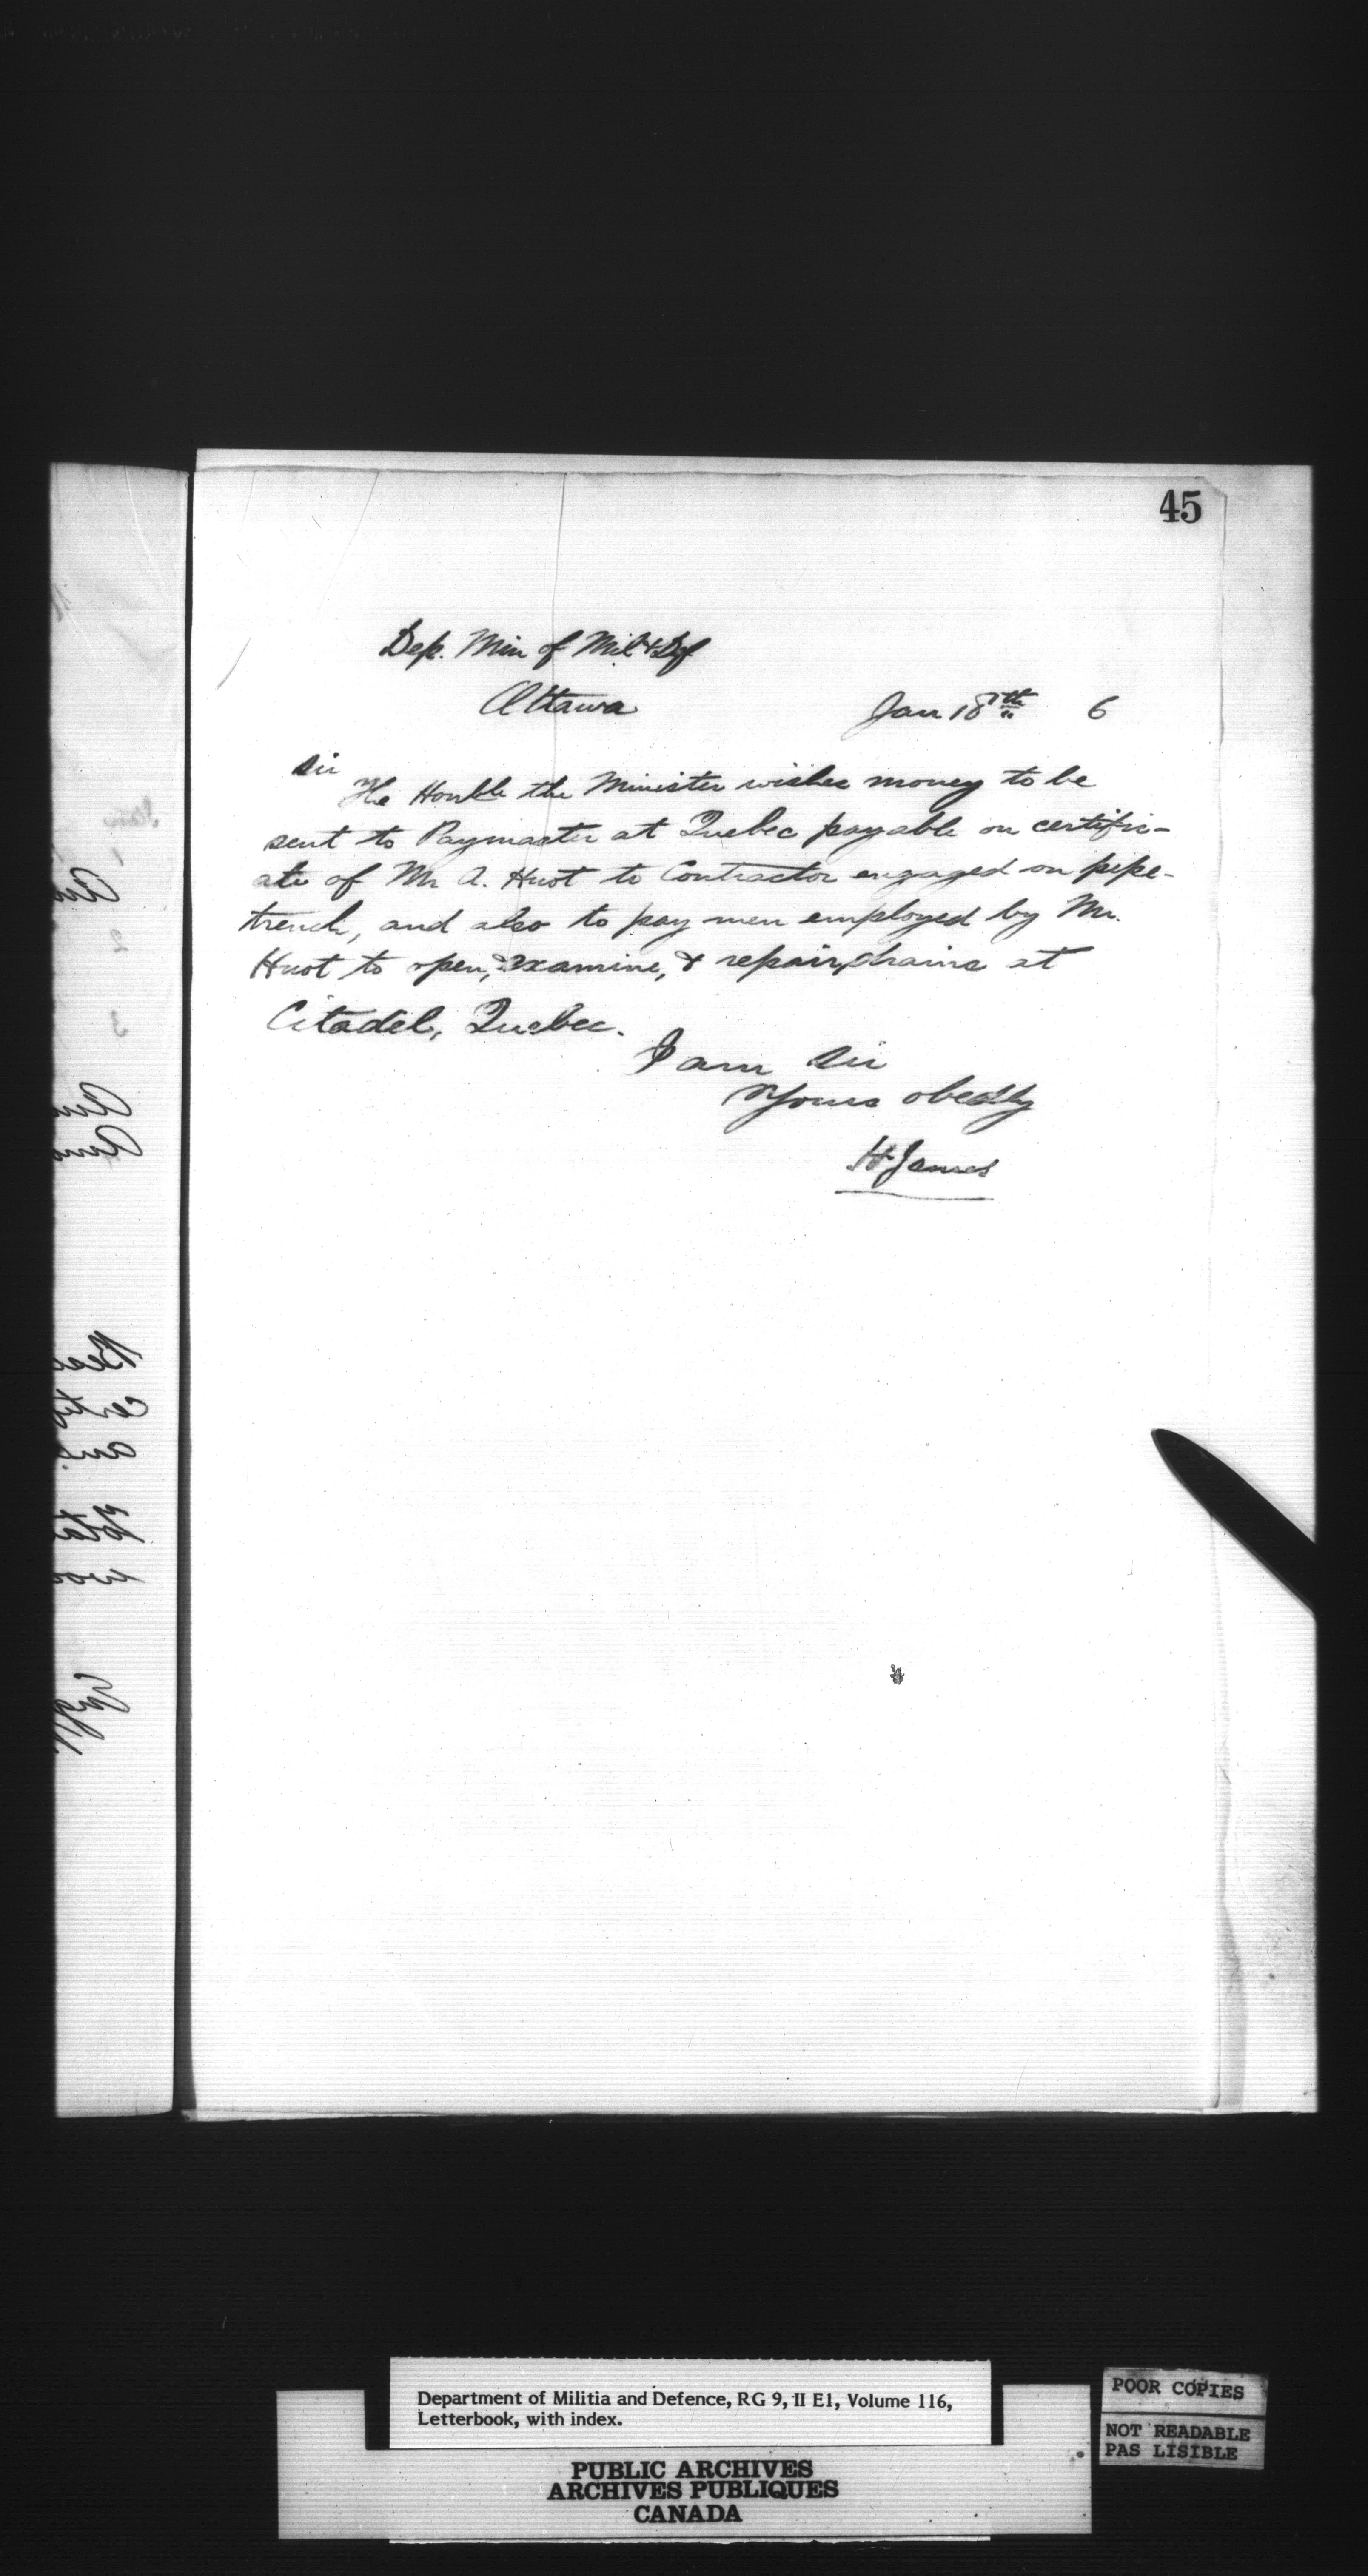 45
Dep. Min of Mil & Def
Ottawa
Jan 18th 6
Sir
The Honble the Minister wishes money to be
sent to Paymaster at Quebec payable on certific-
ate of Mr A. Huot to Contractor engaged on pipe-
trench, and also to pay men employed by Mr.
Huot to open, examine, & repair drains at
Citadel, Quebec.
I am Sir
Yours obedtly
H James
Department of Militia and Defence, RG 9, II E1, Volume 116,
Letterbook, with index.
PUBLIC ARCHIVES
ARCHIVES PUBLIQUES
CANADA
POOR COPIES
NOT READABLE
PAS LISIBLE